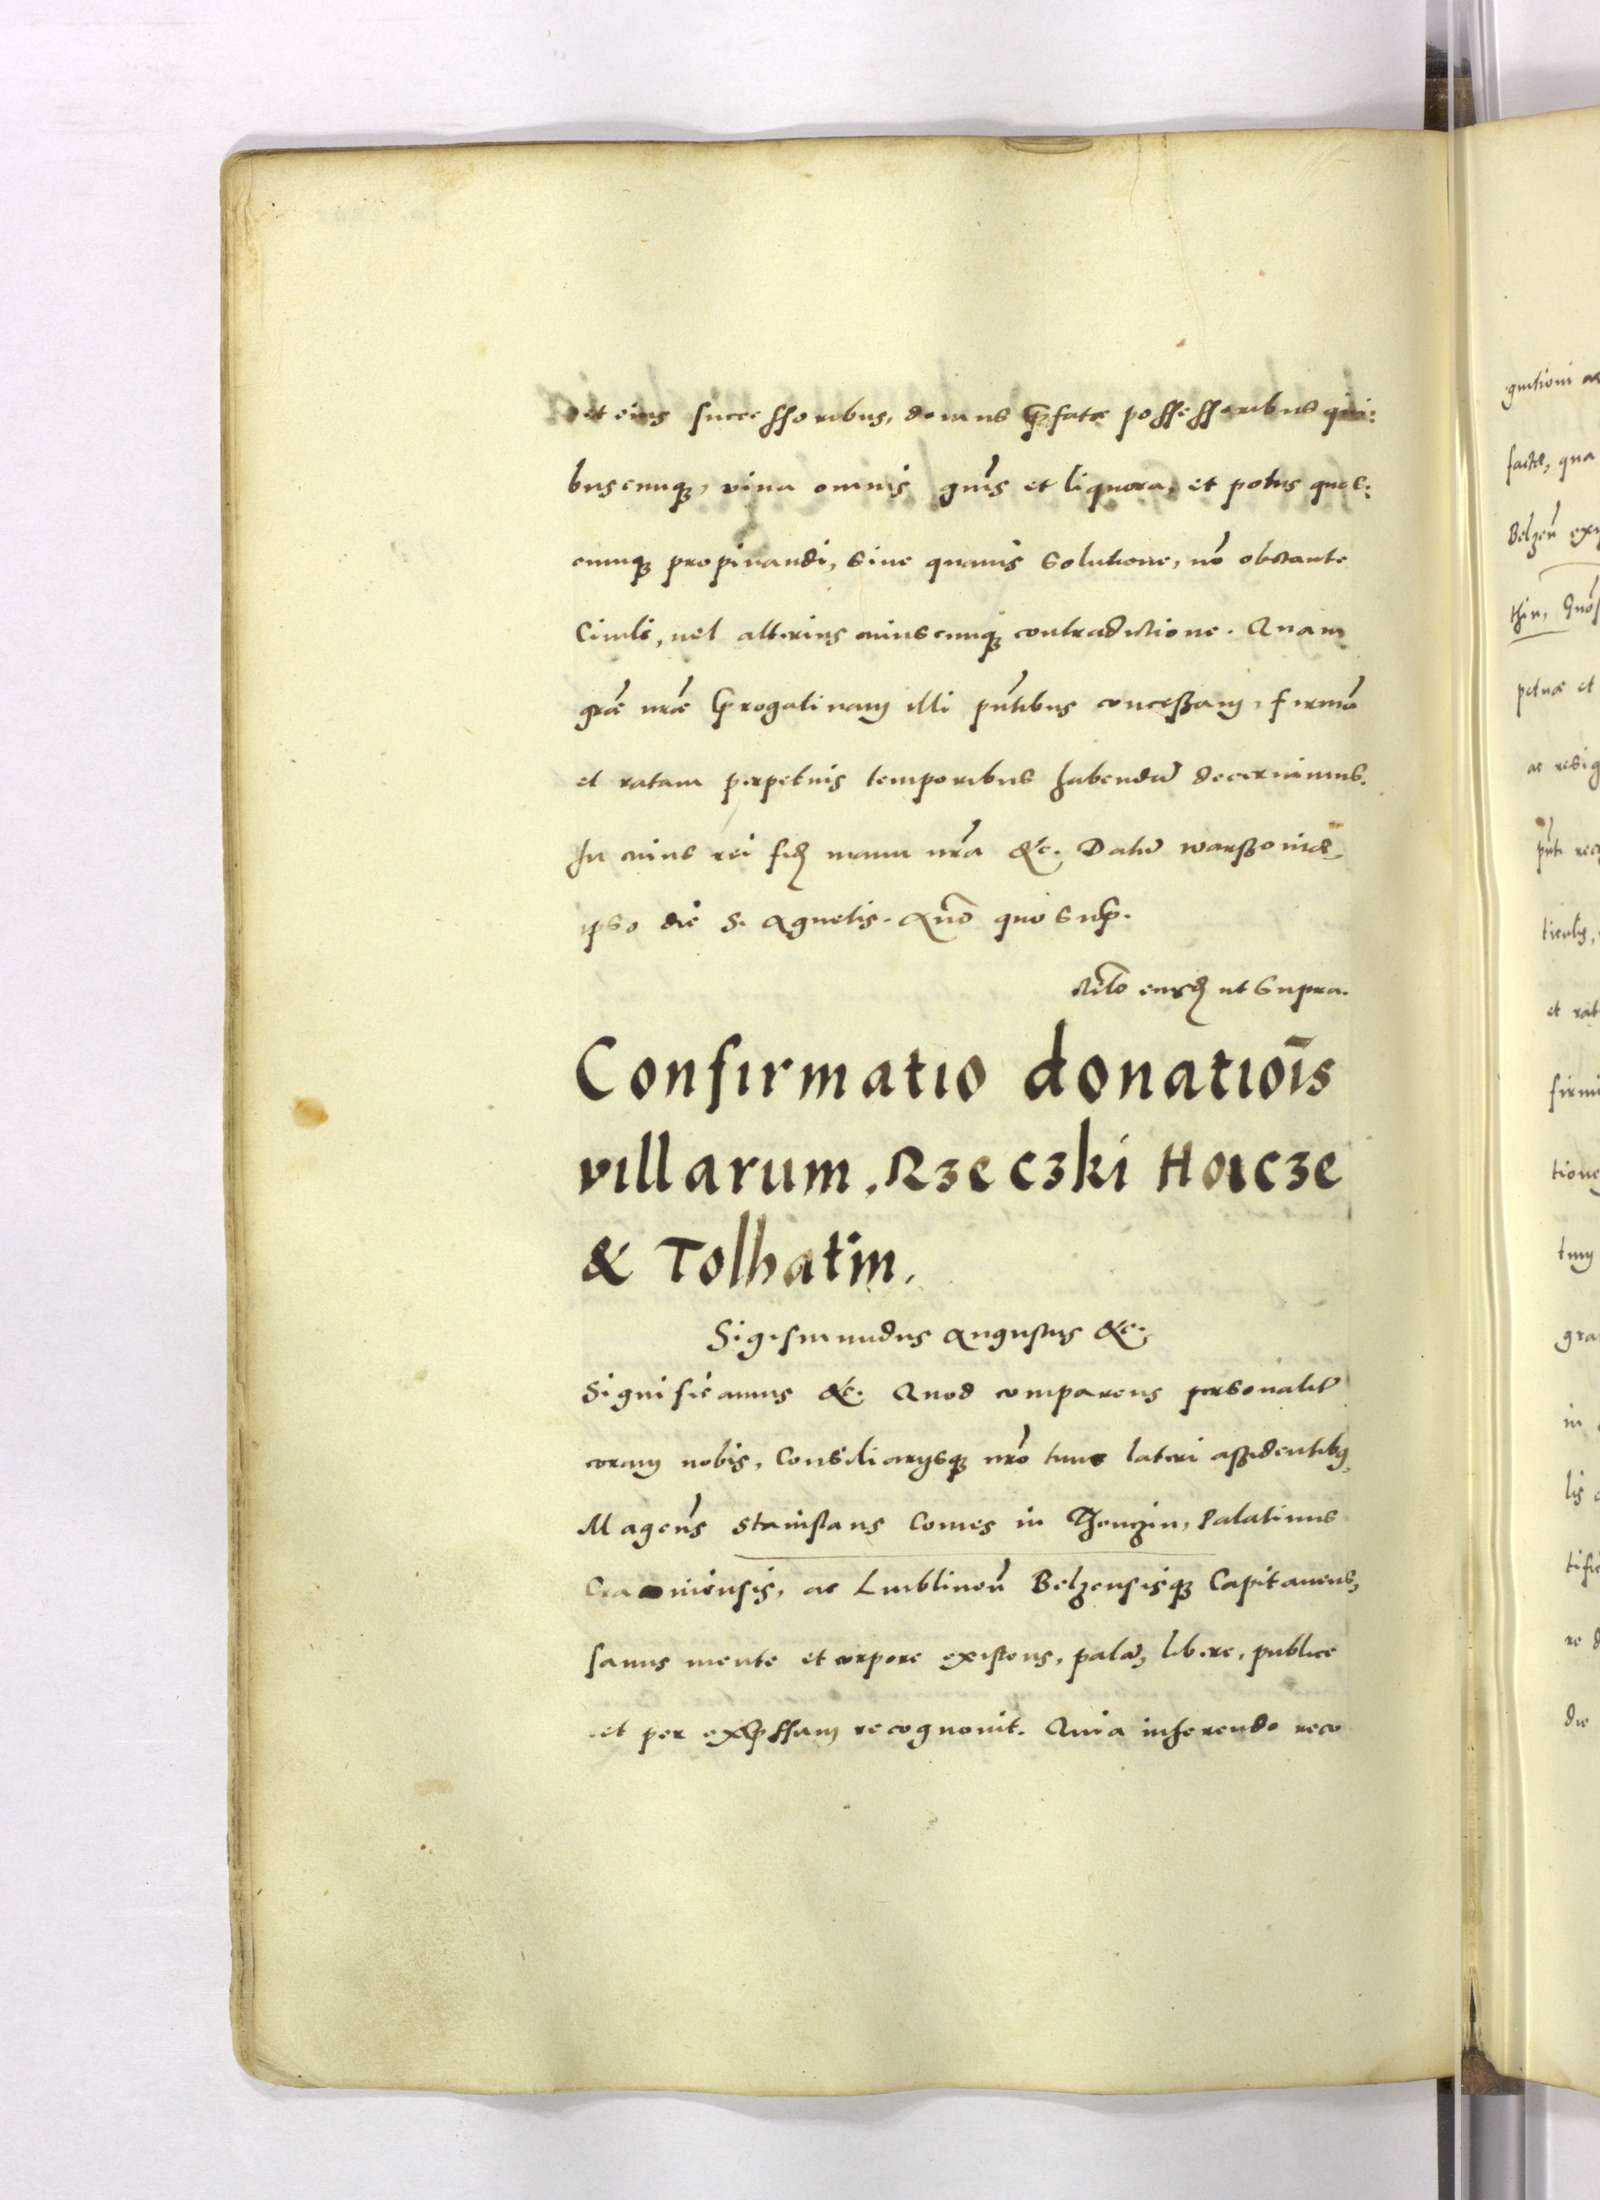 et eius successoribus, domus p̃fatæ possessoribus qui:
buscunq3, vina omnis gn̄is et liquora, et potus quos:
cunq3 propinandi, sine quavis solutione, nō obstante
Civili, vel alterius cuiuscunq3 contradictione. Quam
grãe nrãe p̃rogativam illi pñtibus concessam, firmã
et ratam perpetuis temporibus habendã decernimus.
In cuius rei fidẽ manu nrã &c. Datũ warssoviæ,
ipso die S. Agnetis. Anõ quo sup̃.
Rlõ eiusdẽ ut supra.
Confirmatio donatiōis
villarum, Rzeczki Hacze
& Tolhatin.
Sigismundus Augustus &c.
Significamus &c. Quod comparens personalitẽr
coram nobis, Consiliarijsq3 nrõ tunc lateri assidentibq,
Magcūs Stanislaus Comes in Thenczin, Palatinus
Cracoviensis, ac Lublineñ Belzensisq3 Capitaneus,
sanus mente et corpore existens, palã, libere, publice
et per exp̃ssum recognovit. Quia inherendo reco
gnitioni ac
factæ, qua
Belzeñ
thin,
petuæ et
ac resig
pñti
ticulis,
et rat
firmi
tione
tum
gra
in
lis
tifi
re d
die